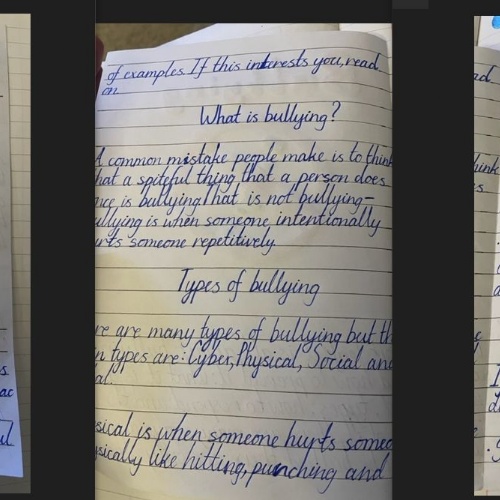 of examples. If this interests you, read
on
What is bullying?
A common mistake people make is to think
hat a spiteful thing that a person does
nce is bullying. That is not bullying-
ullying is when someone intentionally
urts someone repetitively.
Types of bullying
re are many types of bullying but th
n types are: Cyber, Physical, Social and
al.
sical is when someone hurts someo
ysically like hitting, punching and